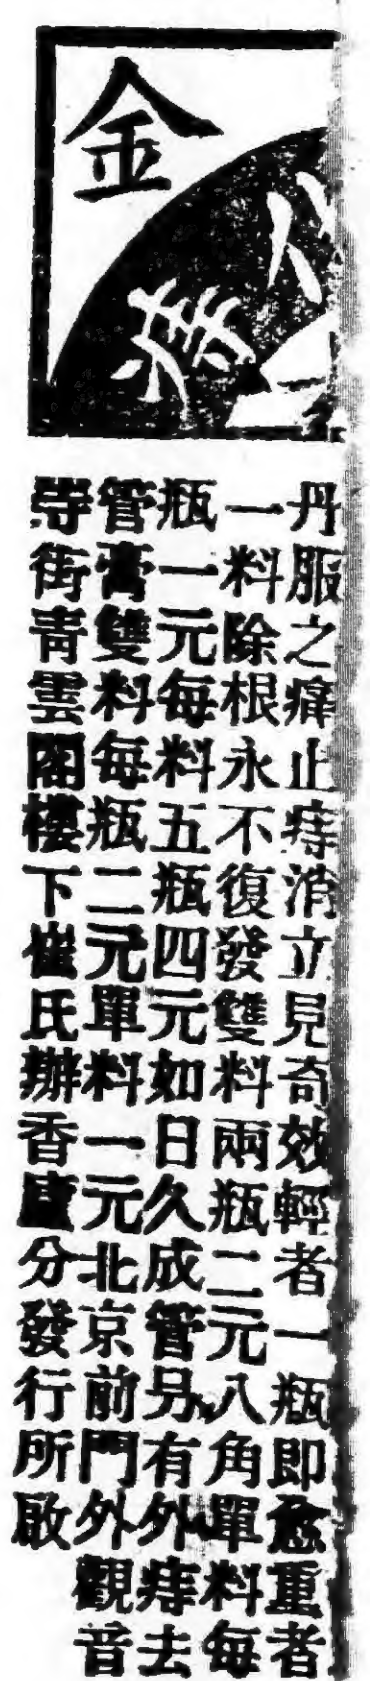 金
痔
丹服之痛止痔消立見奇效輕者一瓶即愈重者
一料除根永不復發雙料兩瓶二元八角單料每
瓶一元每料五瓶四元如日久成管另有外痔去
管膏雙料每瓶二元單料一元北京前門外觀音
寺街青雲閣樓下崔氏瓣香廬分發行所啟